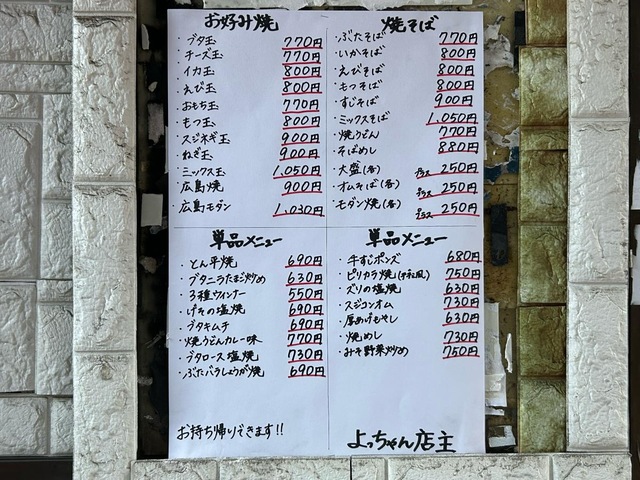 お好み焼
ブタ玉 770円
チーズ玉 770円
イカ玉 800円
えび玉 800円
おもち玉 770円
もつ玉 800円
スジネギ玉 900円
ねぎ玉 900円
ミックス玉 1,050円
広島焼 900円
広島モダン 1,030円
焼そば
ぶたそば 770円
いかそば 800円
えびそば 800円
もつそば 800円
すじそば 900円
ミックスそば 1,050円
焼うどん 770円
そばめし 880円
大盛(各) プラス 250円
オムそば(各) プラス 250円
モダン焼(各) プラス 250円
単品メニュー
・とん平焼 690円
・ブタニラたまご炒め 630円
・3種ウィンナー 550円
・げその塩焼 690円
・ブタキムチ 690円
・焼うどんカレー味 770円
・ブタロース塩焼 730円
・ぶたバラしょうが焼 690円
単品メニュー
・牛すじポンズ 680円
・ピリカラ焼(手羽風) 750円
・ズリの塩焼 630円
・スジコンオム 730円
・厚あげもやし 630円
・焼めし 730円
・みそ野菜炒め 750円
お持ち帰りできます!!
よっちゃん店主